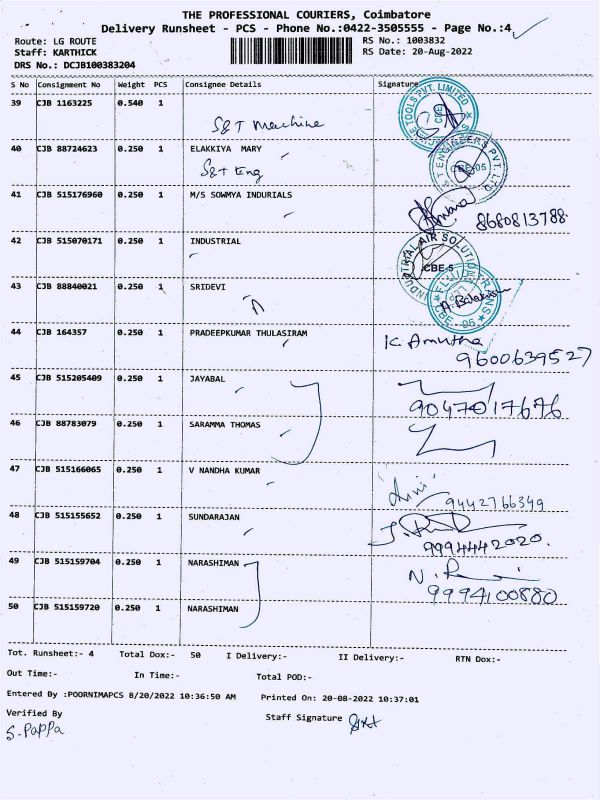 THE PROFESSIONAL COURIERS, Coimbatore
Delivery Runsheet - PCS - Phone No.:0422-3505555 - Page No.:4
Route: LG ROUTE RS No.: 1003832
Staff: KARTHICK RS Date: 20-Aug-2022
DRS No.: DCJB100383204
S No Consignment No Weight PCS Consignee Details Signature
39 CJB 1163225 0.540 1
S&T Machine
40 CJB 88724623 0.250 1 ELAKKIYA MARY
S&T Eng
CBE-05
41 CJB 515176960 0.250 1 M/S SOWMYA INDURIALS
8680813788
42 CJB 515070171 0.250 1 INDUSTRIAL
INDUSTRIAL AIR SOLUTION
CBE-5
43 CJB 88840021 0.250 1 SRIDEVI
44 CJB 164357 0.250 1 PRADEEPKUMAR THULASIRAM
K. Amutha
9600639527
45 CJB 515205409 0.250 1 JAYABAL
9047017676
46 CJB 88783079 0.250 1 SARAMMA THOMAS
47 CJB 515166065 0.250 1 V NANDHA KUMAR
9442766349
48 CJB 515155652 0.250 1 SUNDARAJAN
9994442020.
49 CJB 515159704 0.250 1 NARASHIMAN
9994100880
50 CJB 515159720 0.250 1 NARASHIMAN
Tot. Runsheet:- 4 Total Dox:- 50 I Delivery:- II Delivery:- RTN Dox:-
Out Time:- In Time:- Total POD:-
Entered By :POORNIMAPCS 8/20/2022 10:36:50 AM Printed On: 20-08-2022 10:37:01
Verified By Staff Signature
S. Pappa